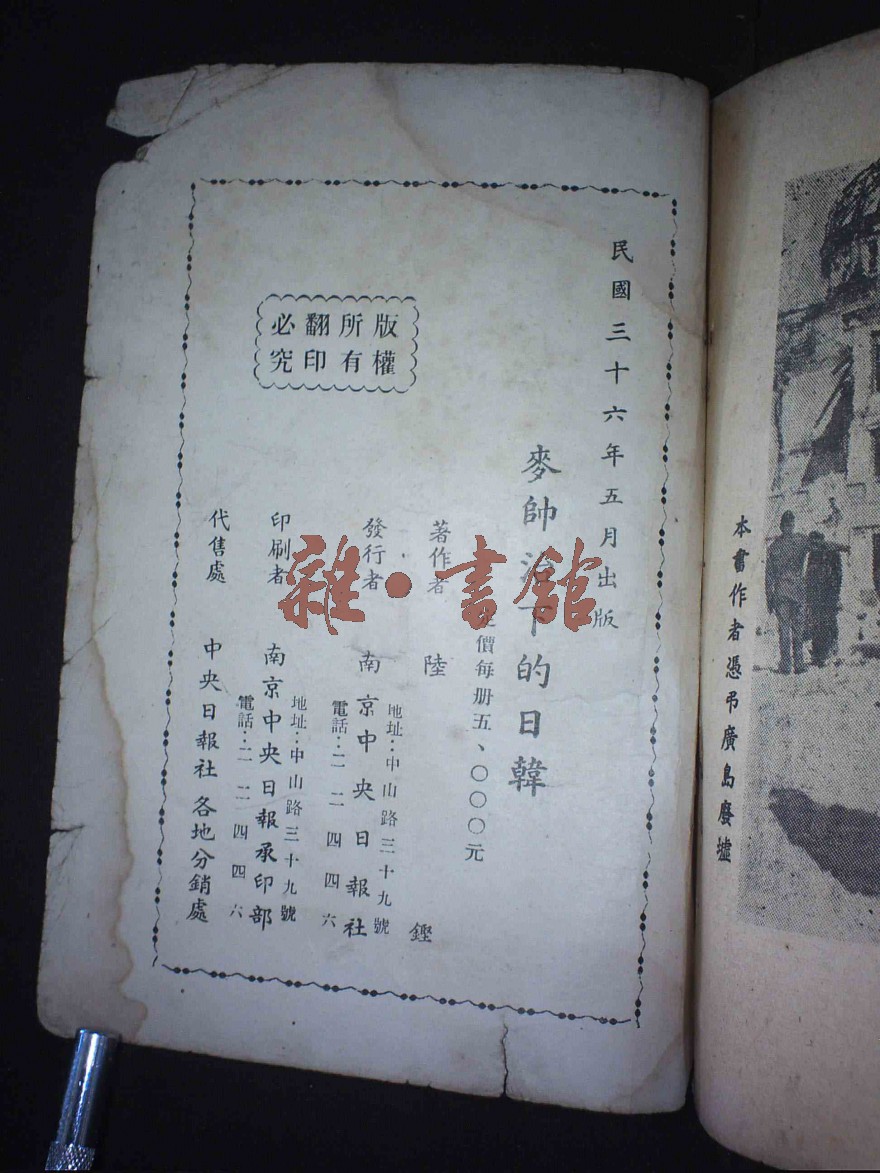 本書作者憑弔廣島廢墟
民國三十六年五月出版
麥帥治下的日韓
定價每册五、〇〇〇元
著作者 陸鏗
發行者 南京中央日報社
地址：中山路三十九號
電話：二二四四六
印刷者 南京中央日報承印部
地址：中山路三十九號
電話：二二四四六
代售處 中央日報社各地分銷處
版權
所有
翻印
必究
雜·書舘